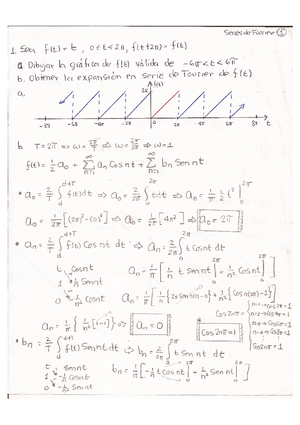 Series de Fourier 1
1. Sea f(t) = t, 0<t<2π, f(t+2π) = f(t)
a. Dibujar la gráfica de f(t) válida de -6π<t<6π
b. Obtener la expansión en serie de Tourier de f(t)
a. 2π f(t)
-8π -6π -4π -2π 0 2π 4π 6π 8π t
b. T=2π ⇒ ω=2π/T ⇒ ω=2π/2π ⇒ ω=1
f(t) = 1/2 a₀ + Σ(n=1, ∞) aₙ Cos nt + Σ(n=1, ∞) bₙ Sen nt
• a₀ = 2/T ∫(d, d+T) f(t)dt ⇒ a₀ = 2/2π ∫(0, 2π) t dt ⇒ a₀ = 1/π 1/2 t² |(0, 2π)
a₀ = 1/2π [(2π)²-(0)²] ⇒ a₀ = 1/2π [4π²] ⇒ a₀ = 2π
• aₙ = 2/T ∫(d, d+T) f(t) Cos nt dt ⇒ aₙ = 2/2π ∫(0, 2π) t Cos nt dt
t Cos nt
1 1/n Sen nt
0 -1/n² Cos nt
aₙ = 1/π [1/n t Sen nt |(0, 2π) + 1/n² Cos nt |(0, 2π)]
aₙ = 1/π { 1/n [2π Sen 2nπ-0] + 1/n² [Cos 2nπ-1] }
aₙ = 1/π { 1/n² [1-1] } ⇒ aₙ = 0
Cos 2nπ = 1
• bₙ = 2/T ∫(d, d+T) f(t) Sen nt dt ⇒ bₙ = 2/2π ∫(0, 2π) t Sen nt dt
t Sen nt
1 -1/n Cos nt
0 -1/n² Sen nt
bₙ = 1/π [-1/n t Cos nt |(0, 2π) + 1/n² Sen nt |(0, 2π)]